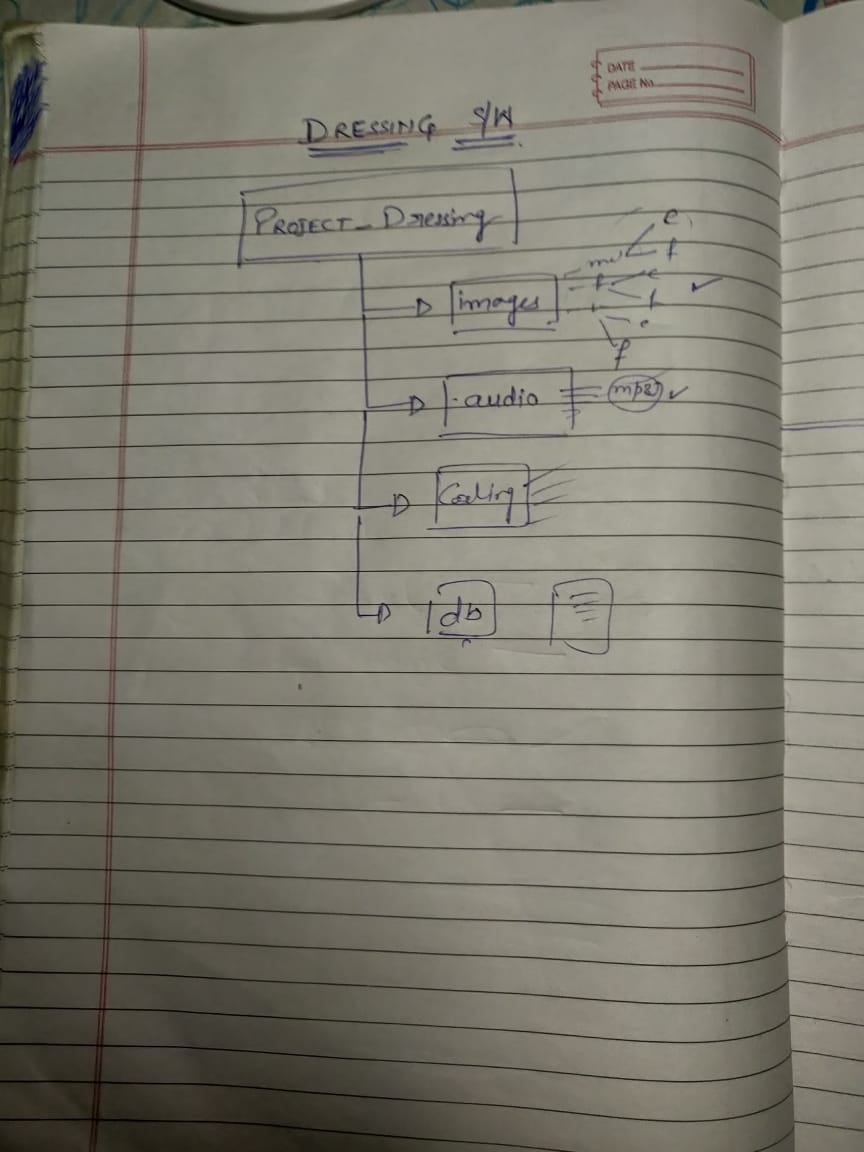 DATE
PAGE No.
DRESSING S/W.
PROJECT - Dressing
images
e
f
e
f
e
f
audio
mp3
Coding
db